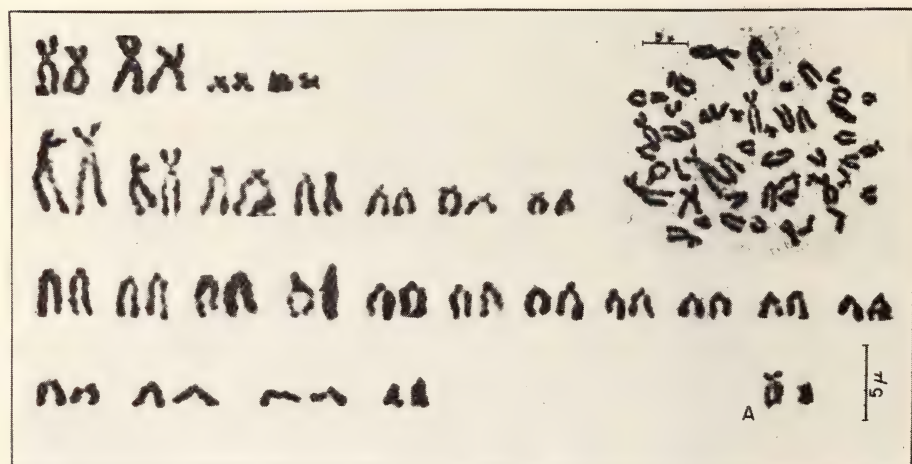 5 μ
A
5 μ